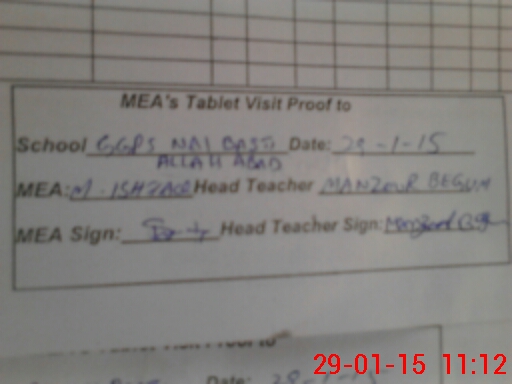 MEA's Tablet Visit Proof to
School GGPS NAI BASTI Date: 29-1-15
ALLAH ABAD
MEA: M. ISHFAQ Head Teacher MANZOUR BEGUM
MEA Sign: Head Teacher Sign: Manzoor
Tablet Visit Proof to
Date:
29-01-15 11:12